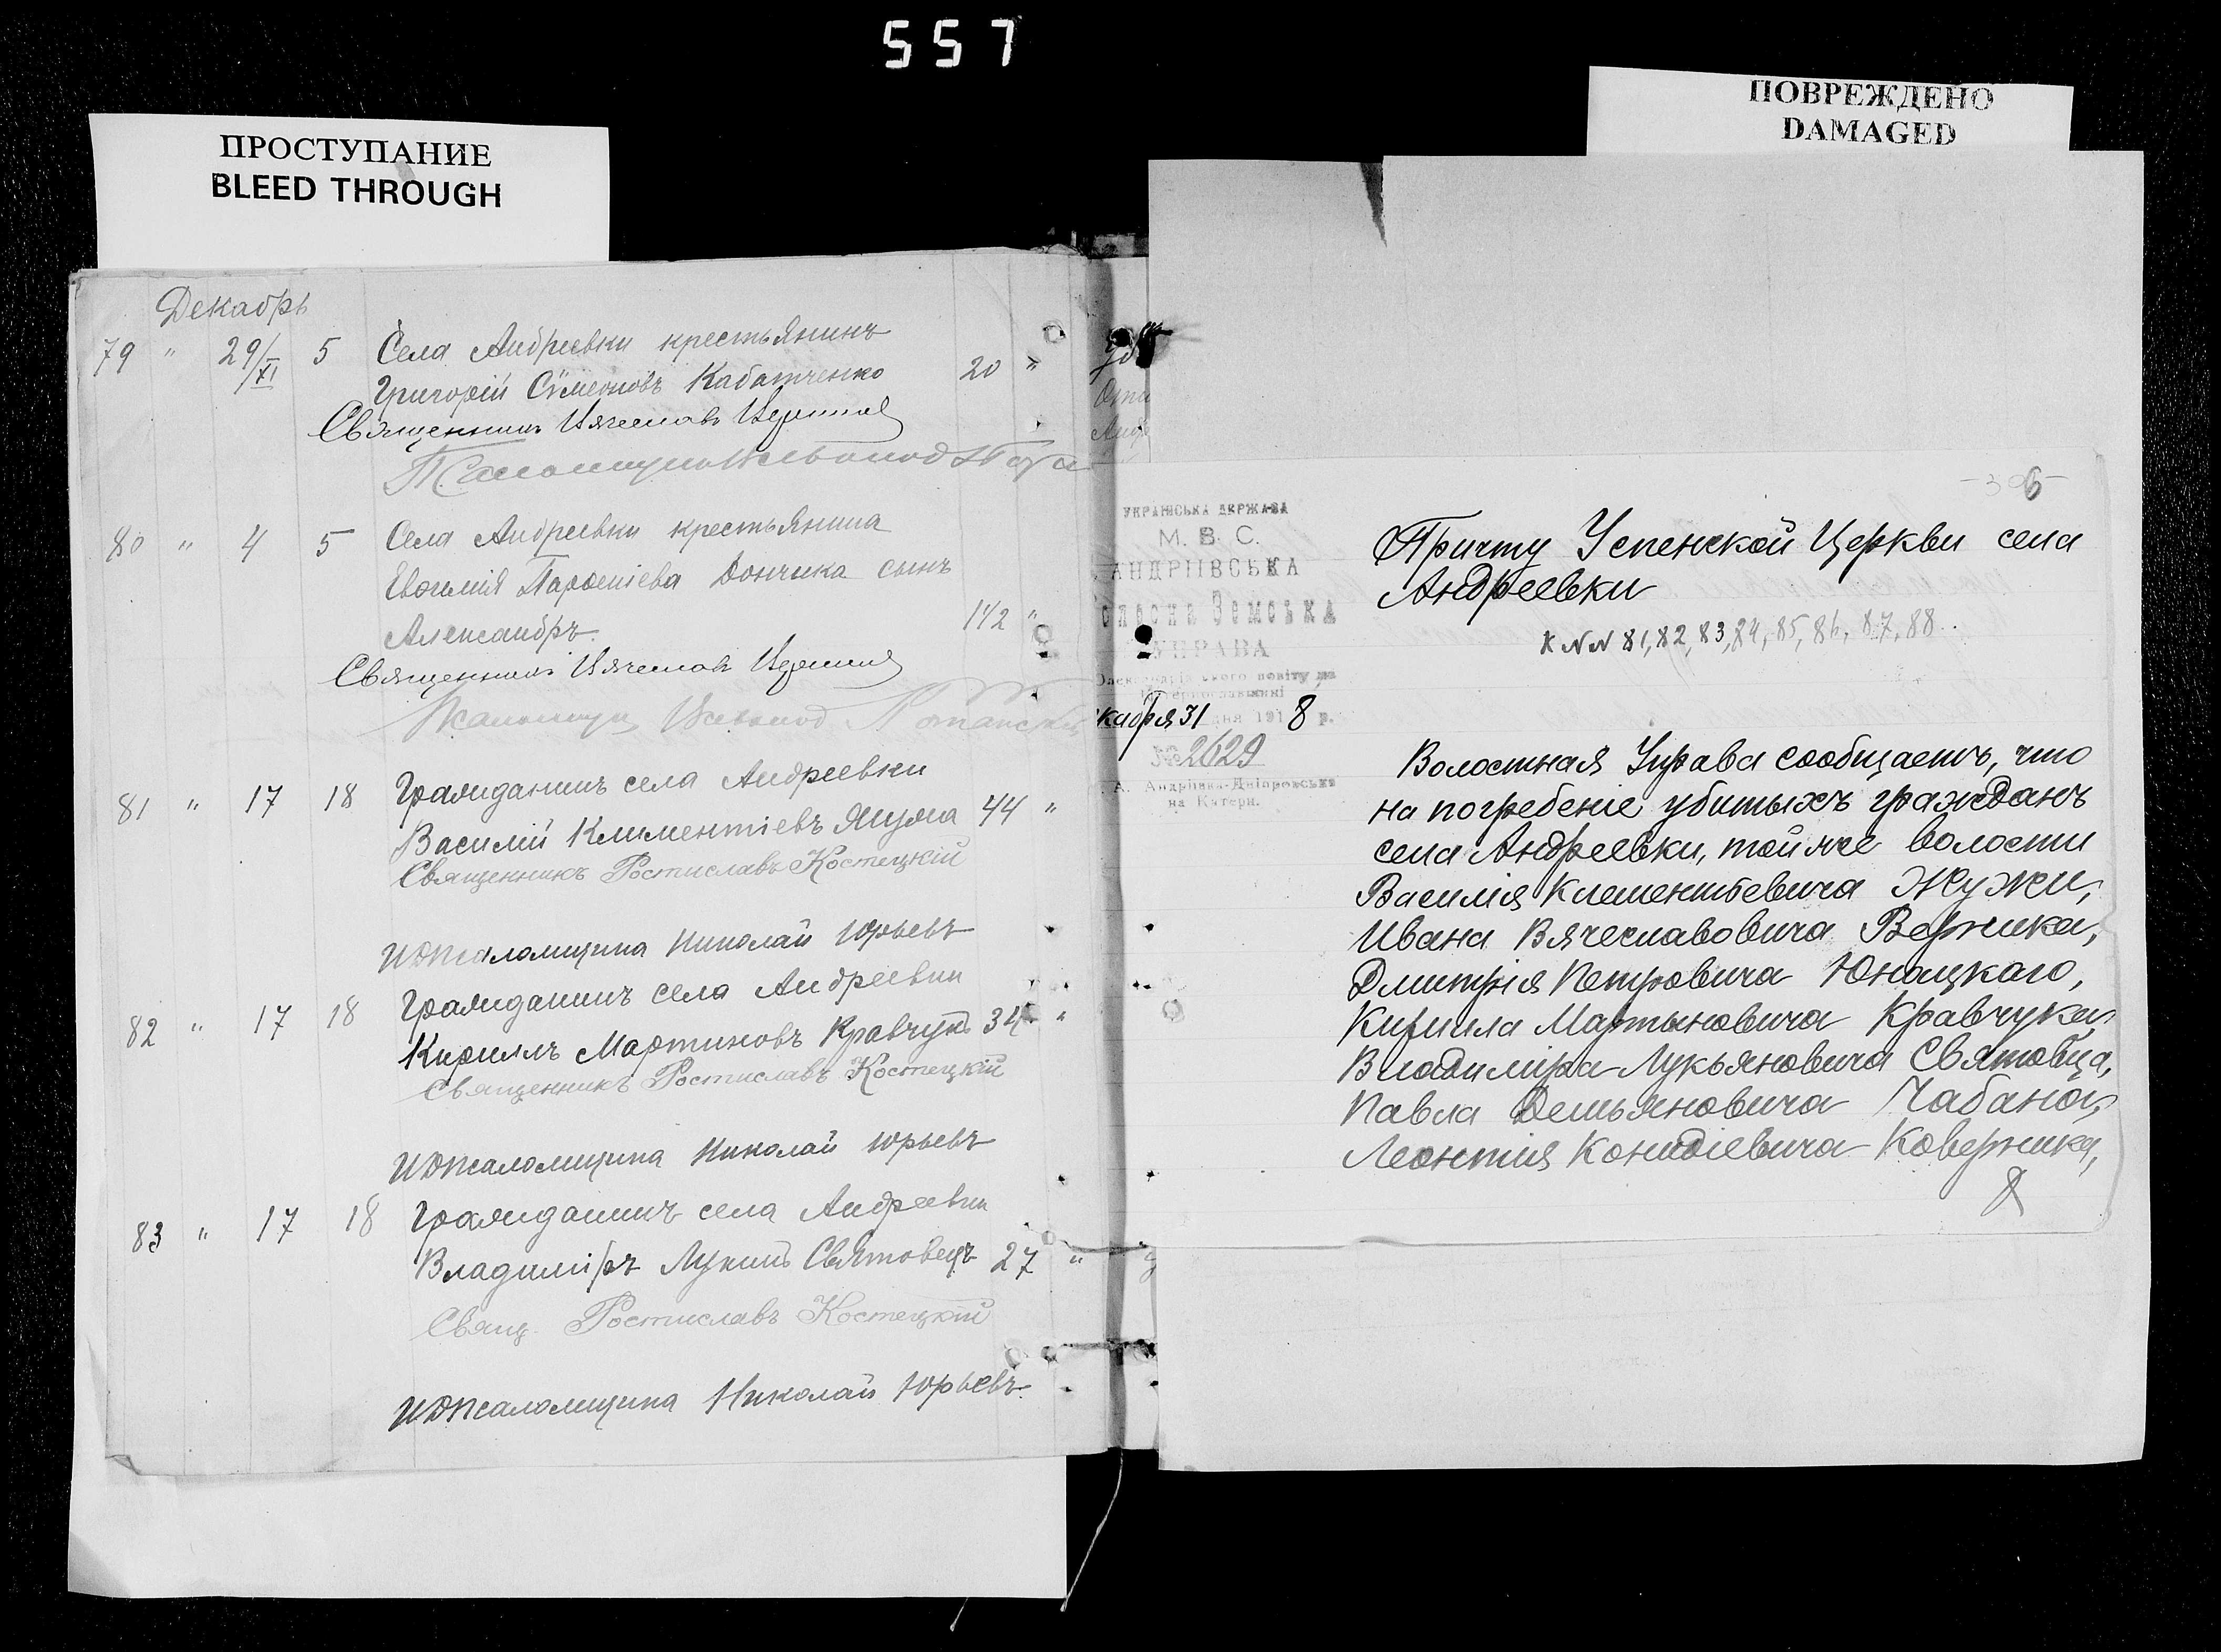 557
ПРОСТУПАНИЕ
BLEED THROUGH
ПОВРЕЖДЕНО
DAMAGED
Декабрь
79 " 29/XI 5 Села Андреевки крестьянинъ
Григорій Сѵмеоновъ Кабатченко 20 "
Священникъ Вячеславъ
80 " 4 5 Села Андреевки крестьянина
Евѳимія Парѳеніева Дончика сынъ
Александръ. 1 1/2 "
Священникъ Вячеславъ
Псаломщик
81 " 17 18 Гражданинъ села Андреевки
Василій Климентіевъ 44 "
Священникъ Ростиславъ Костецкій
ИДПсаломщика Николай Юрьевъ
82 " 17 18 Гражданинъ села Андреевки
Кириллъ Мартиновъ Кравчукъ 34 "
Священникъ Ростиславъ Костецкій
ИДПсаломщика Николай Юрьевъ
83 " 17 18 Гражданинъ села Андреевки
Владиміръ Лукинъ Святовецъ 27 "
Свящ. Ростиславъ Костецкій
ИДПсаломщика Николай Юрьевъ
УКРАЇНСЬКА ДЕРЖАВА
М. В. С.
АНДРІЇВСЬКА
Земська
УПРАВА
повіту на
кабря 31 дня 1918 р.
№ 2629
А. Андріївка-Дніпровська
на Катерн.
Причту Успенской Церкви села
Андреевки
К №№ 81, 82, 83, 84, 85, 86, 87, 88.
Волостная Управа сообщаетъ, что
на погребеніе убитыхъ гражданъ
села Андреевки, той же волости
Василія Клементьевича Жужи,
Ивана Вячеславовича Верника,
Дмитрія Петровича Юнацкаго,
Кирилла Мартыновича Кравчука,
Владиміра Лукьяновича Святовца,
Павла Демьяновича Чабана,
Леонтія Ковержика,